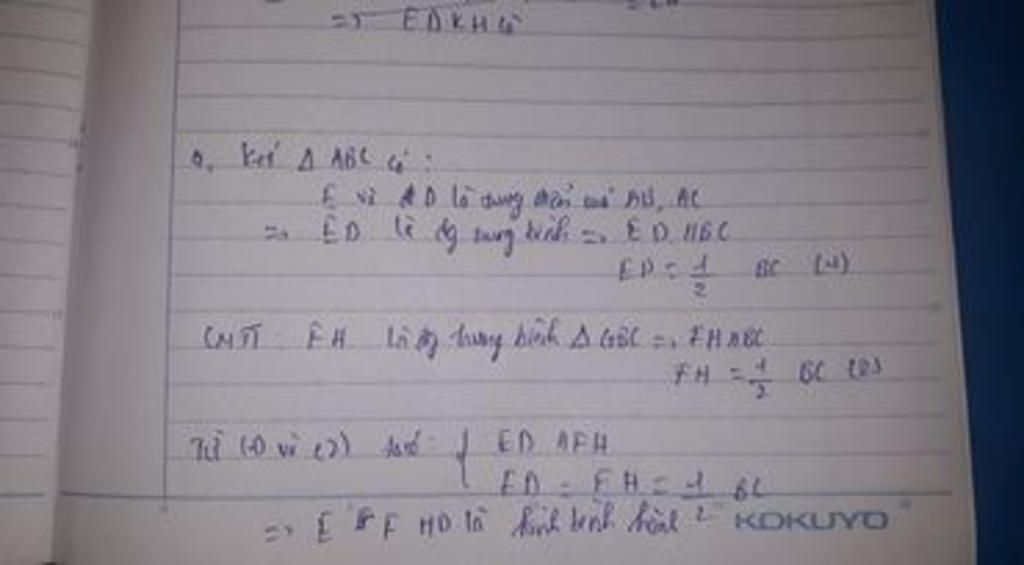 => EDKH có
a, Xét Δ ABC có :
E và D là trung điểm của AB, AC
=> ED là đg trung bình => ED // BC
ED = 1/2 BC (1)
CMTT : FH là đg trung bình Δ GBC => FH // BC
FH = 1/2 BC (2)
Từ (1) và (2) ta có : { ED // FH
ED = FH = 1/2 BC
=> E F HD là hình bình hành
KOKUYO